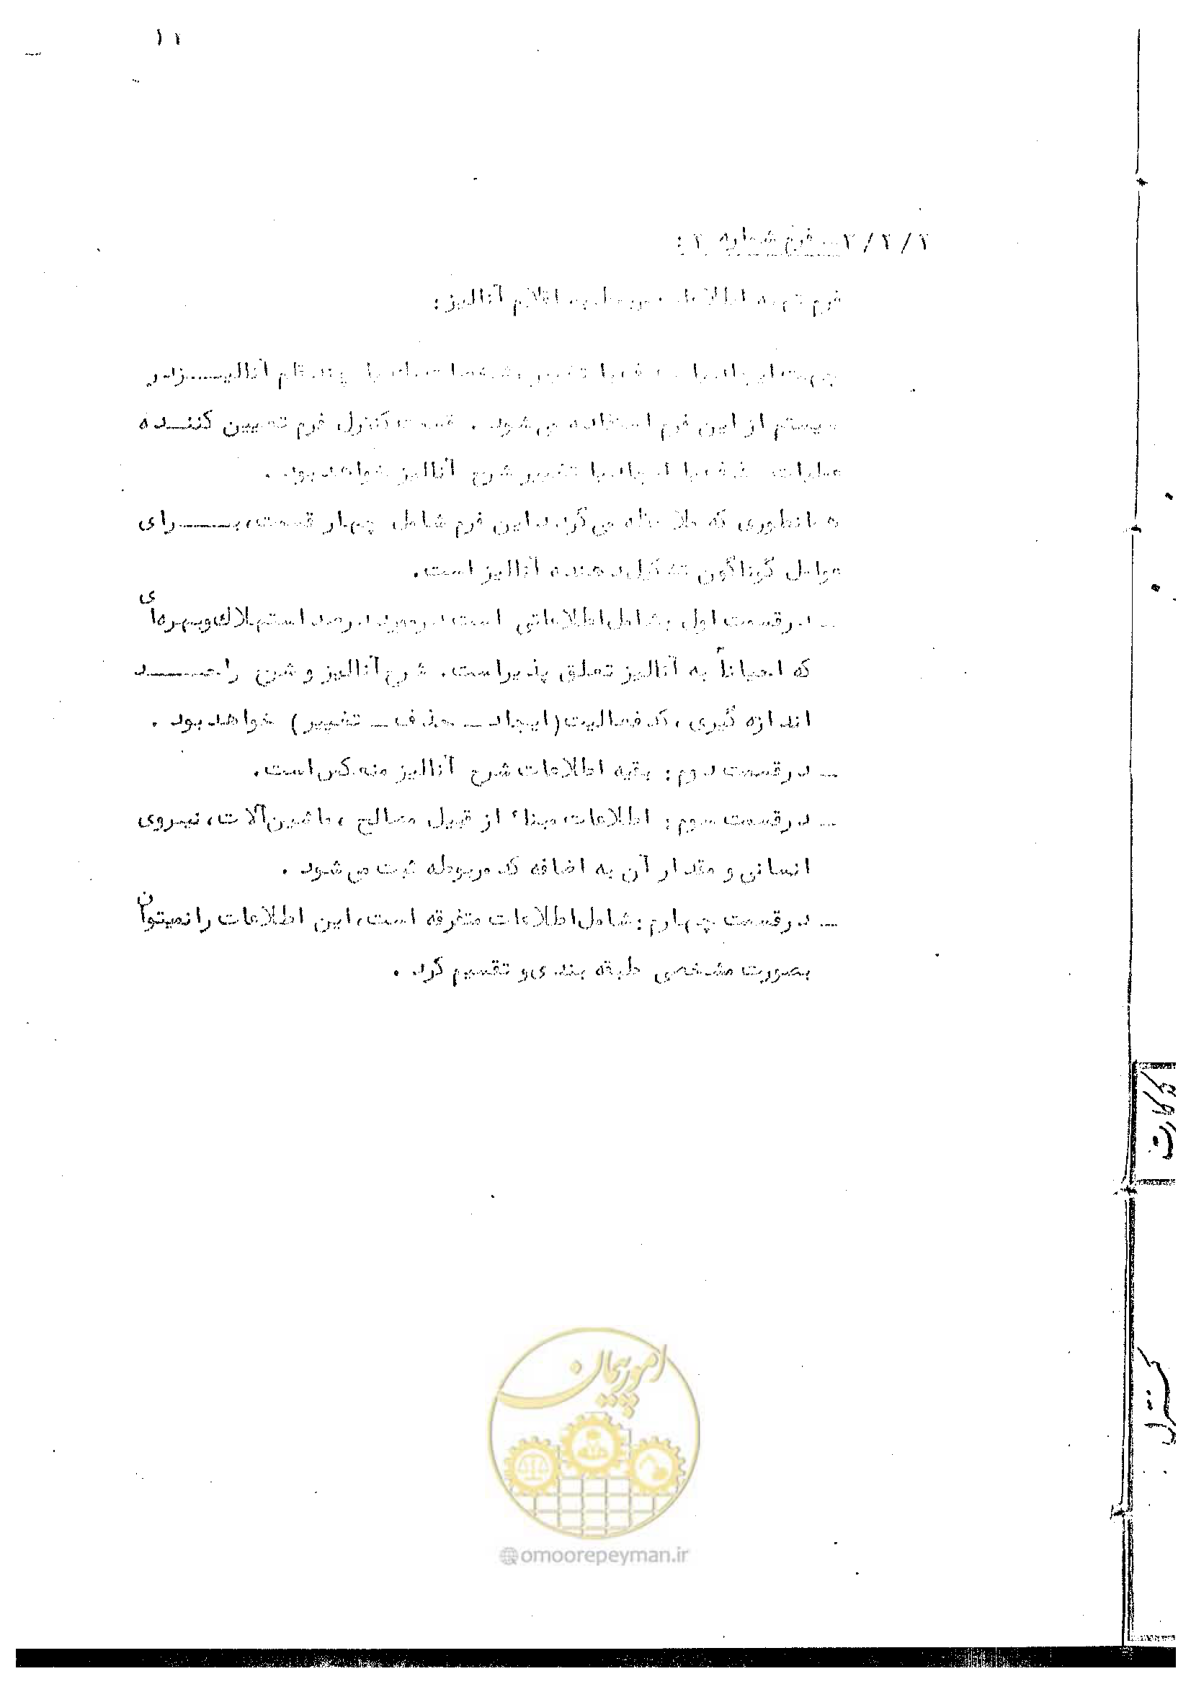 ۱۱
۲/۲/۲ـ فرم شماره ۲ :
فرم تهیه اطلاعات مربوط به اقلام آنالیز:
جهت ایجاد یا حذف یا تغییر مشخصات یک یا چند قلم آنالیــــز در
سیستم از این فرم استفاده می‌شود . قسمت کنترل فرم تعیین کننــده
عملیات حذف یا ایجاد یا تغییر شرح آنالیز خواهد بود .
همانطوری که ملاحظه می‌گردد این فرم شامل چهار قسمت، بــــرای
عوامل گوناگون تشکیل‌دهنده آنالیز است.
ـ در قسمت اول : شامل اطلاعاتی است در مورد درصد استهلاک و بهره‌ای
که احیاناً به آنالیز تعلق پذیر است. شرح آنالیز و شرح واحـــــد
اندازه گیری ، کد فعالیت (ایجاد ـ حذف ـ تغییر ) خواهد بود .
ـ در قسمت دوم : بقیه اطلاعات شرح آنالیز منعکس است.
ـ در قسمت سوم : اطلاعات مبناء از قبیل مصالح ، ماشین‌آلات ، نیروی
انسانی و مقدار آن به اضافه کد مربوطه ثبت می‌شود .
ـ در قسمت چهارم : شامل اطلاعات متفرقه است، این اطلاعات را نمیتوان
بصورت مشخصی طبقه بندی و تقسیم کرد .
کد کارت
کنترل
امور پیمان
@omoorepeyman.ir